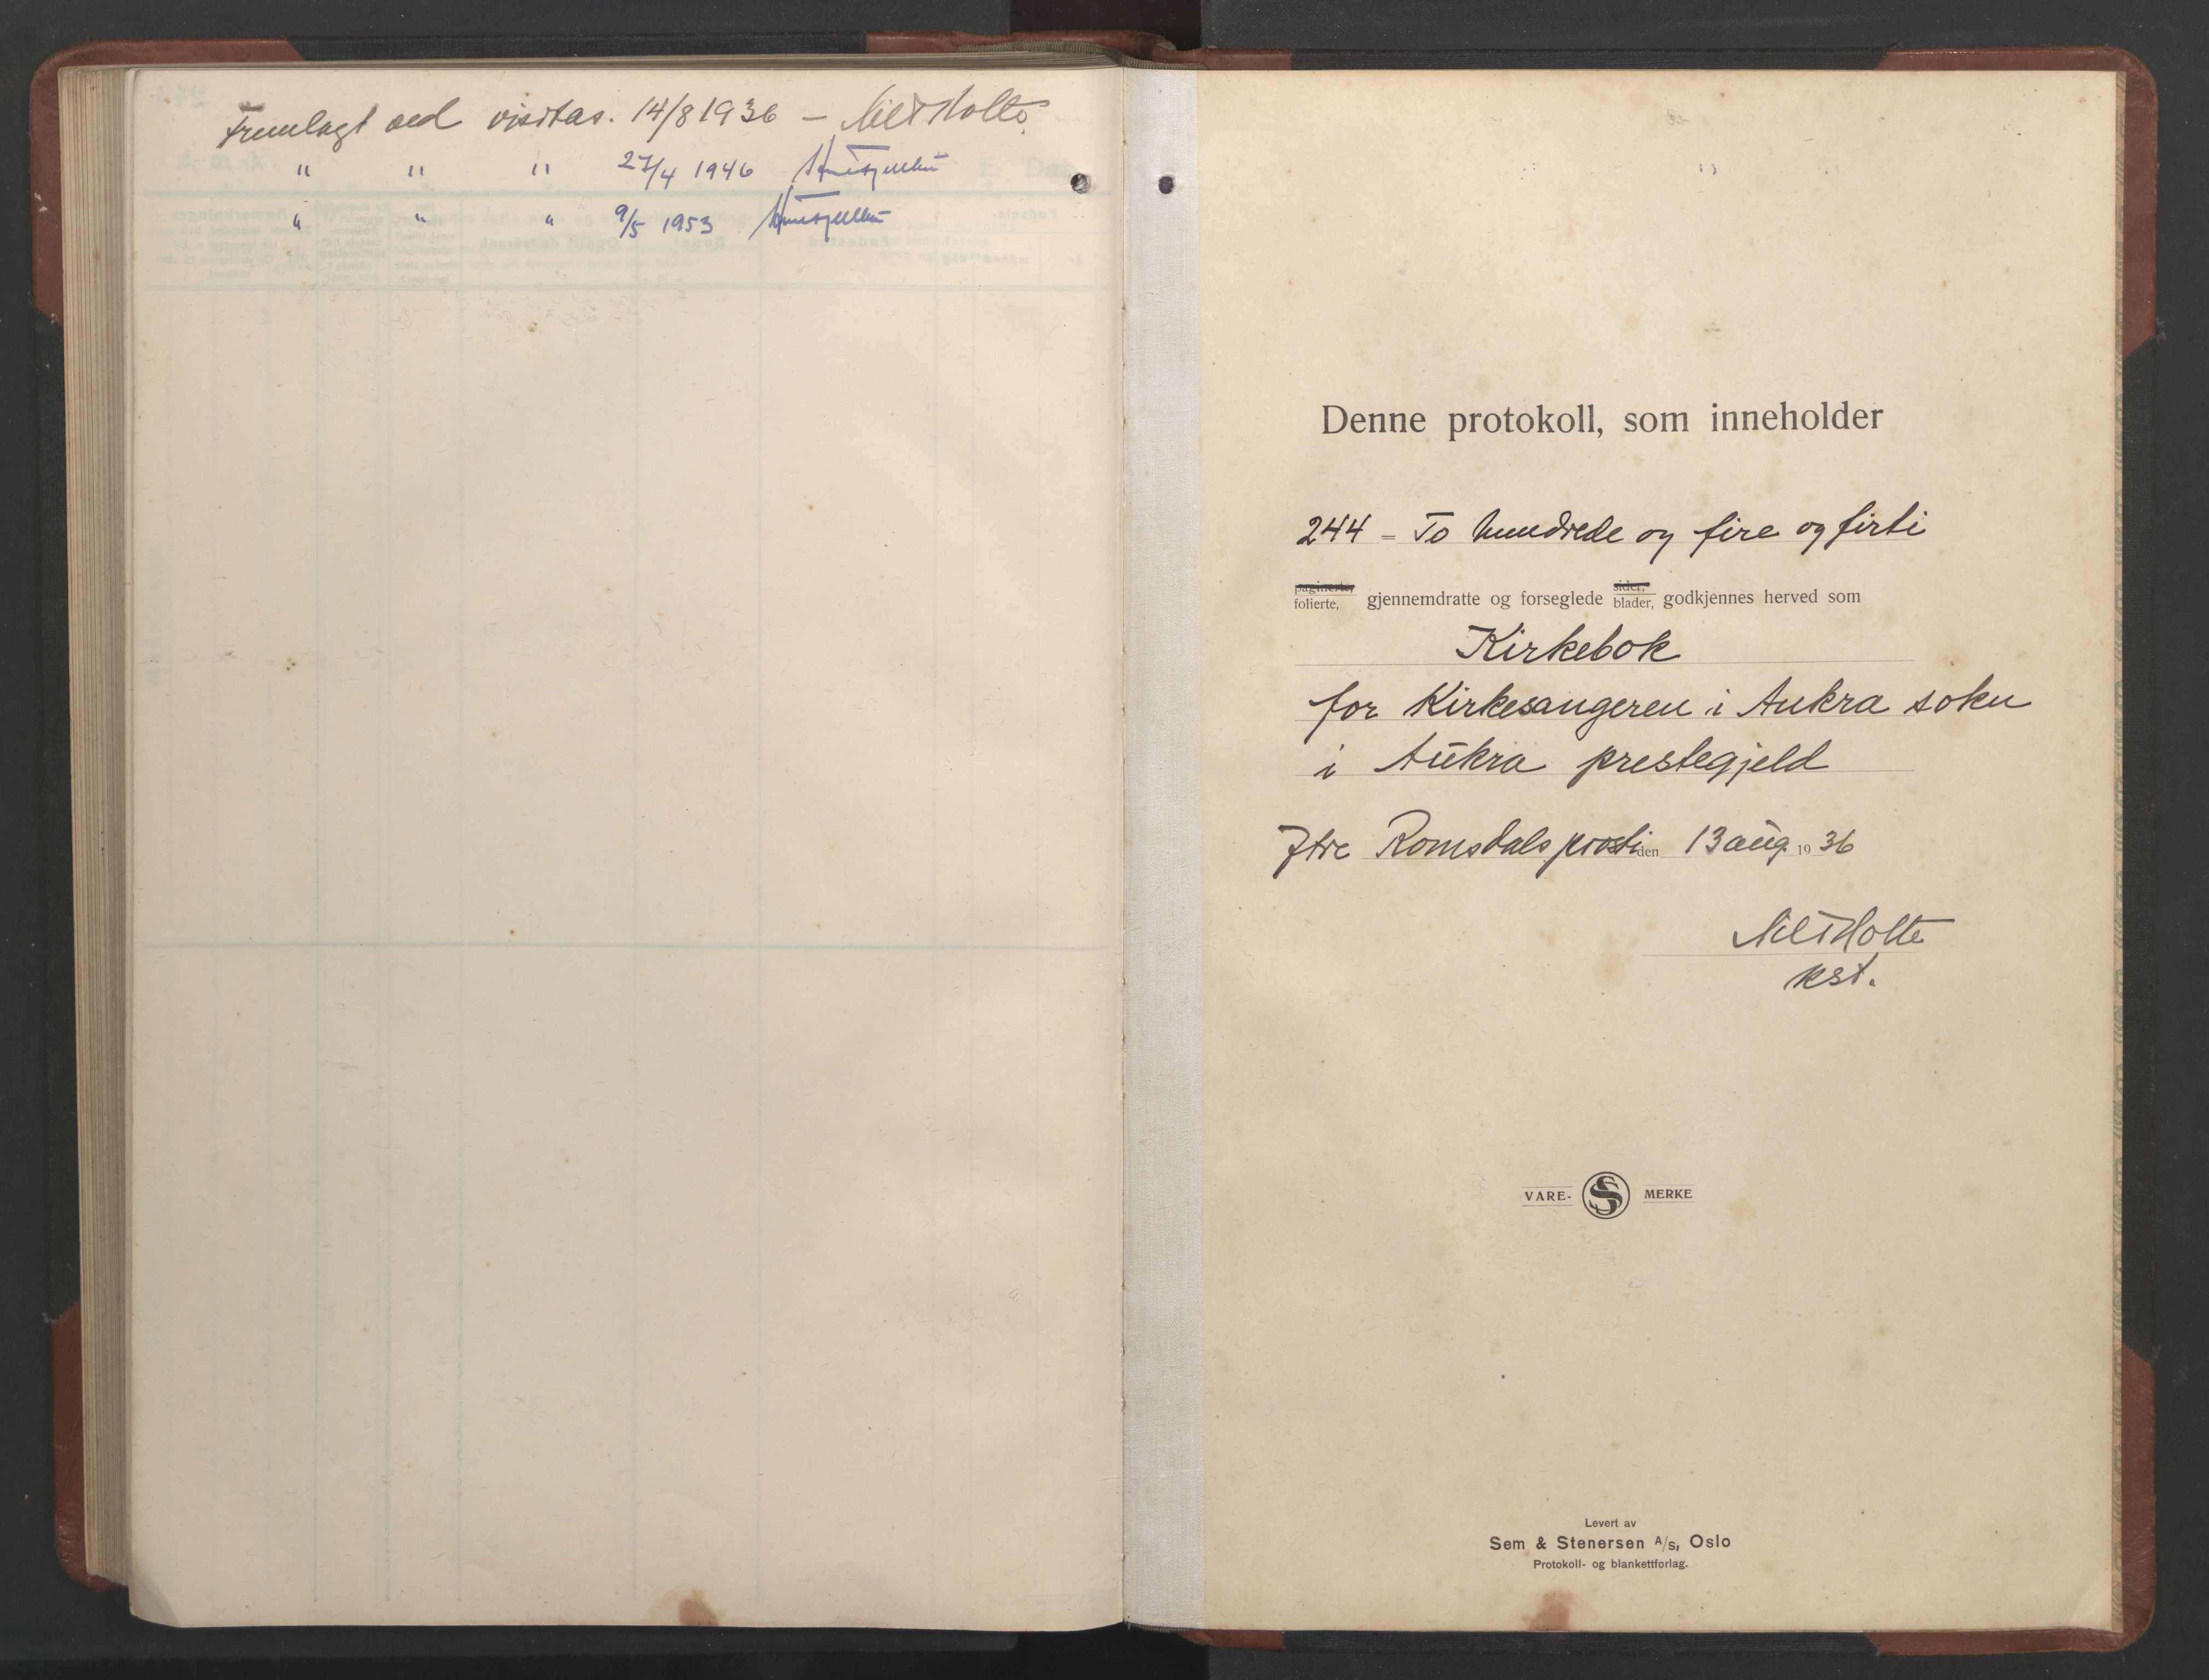 Fremlagt ved visitas. 14/8 1936 – Nils Holte
" " " 27/4 1946
" " " 9/5 1953
Denne protokoll, som inneholder
244 = To hundrede og fire og firti
paginerte, folierte, gjennemdratte og forseglede sider, blader, godkjennes herved som
Kirkebok
for Kirkesangeren i Aukra sokn
i Aukra prestegjeld
Ytre Romsdals prosti den 13 aug. 1936
Nils Holte
kst.
VARE- S MERKE
Levert av
Sem & Stenersen A/s, Oslo
Protokoll- og blankettforlag.